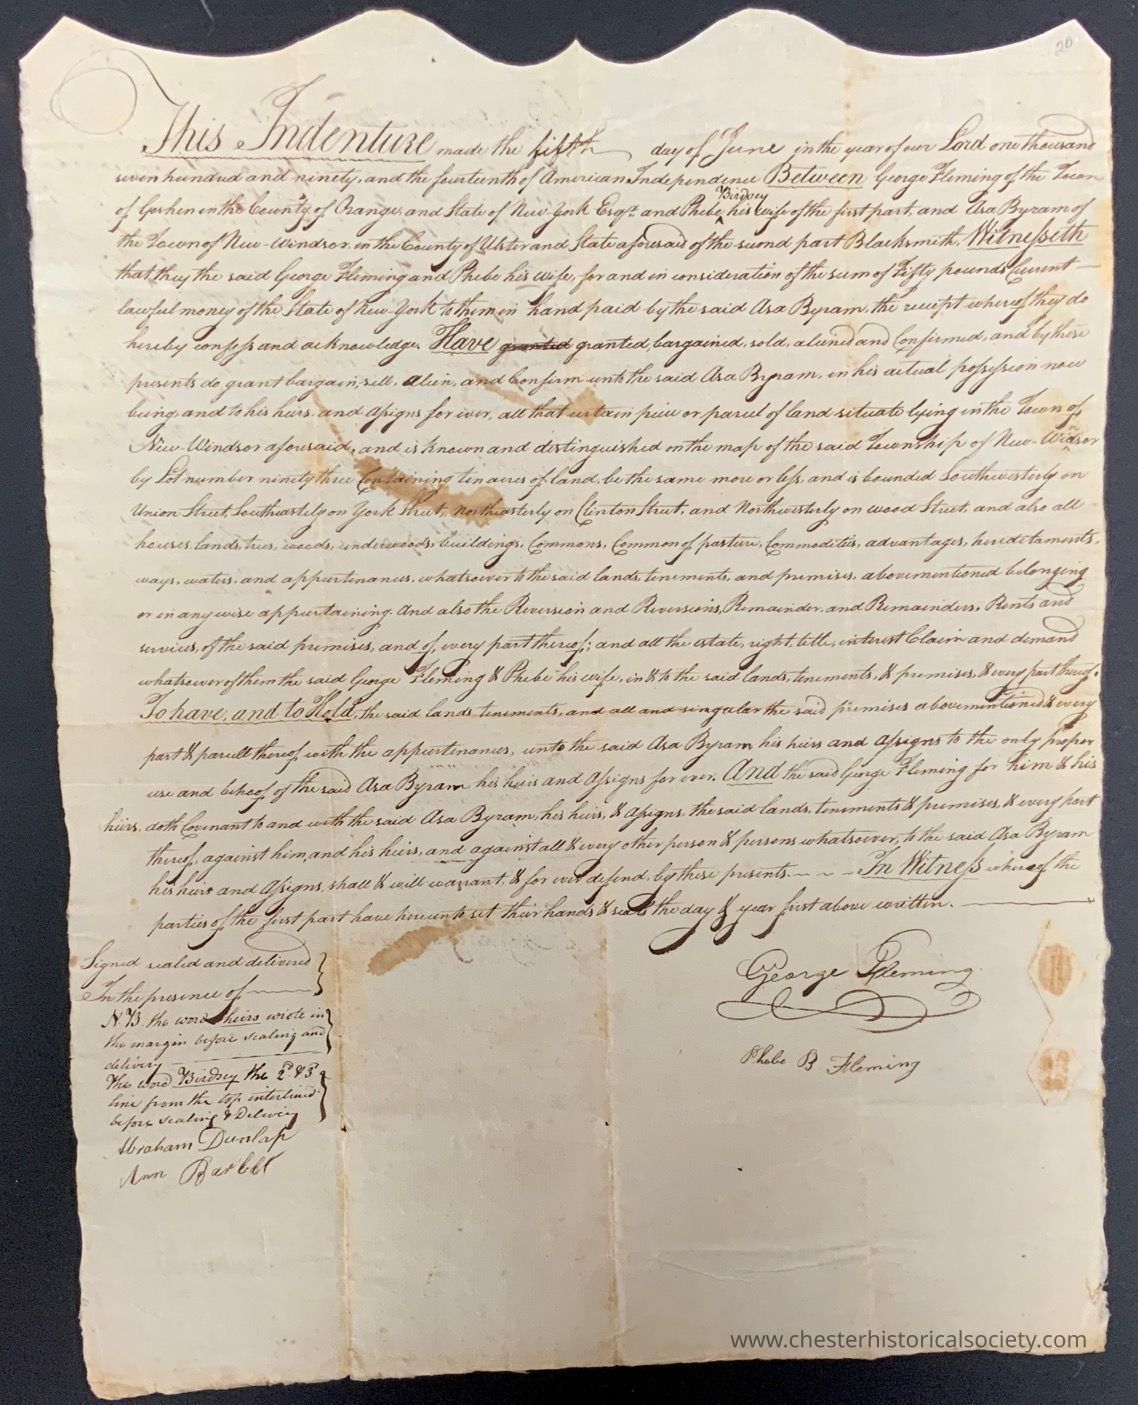 20
This Indenture made the fifth day of June in the year of our Lord one thousand
seven hundred and ninety, and the fourteenth of American Independence Between George Fleming of the Town
Birdsey
of Goshen in the County of Orange, and State of New York Esqr. and Phebe ^ his wife of the first part, and Asa Byram of
the Town of New-Windsor in the County of Ulster and State aforesaid of the second part Blacksmith. Witnesseth
that they the said George Fleming and Phebe his wife, for and in consideration of the sum of Fifty pounds Current
lawful money of the State of New York to them in hand paid by the said Asa Byram, the receipt whereof they do
hereby confess and acknowledge. Have granted granted, bargained, sold, aliened and Confirmed, and by these
presents do grant bargain, sell, alein, and Confirm unto the said Asa Byram, in his actual possession now
being, and to his heirs and assigns for ever, all that certain peice or parcel of land situate lying in the Town of
New-Windsor aforesaid, and is known and distinguished on the map of the said Township of New-Windsor
by Lot number ninety three Containing ten acres of land, be the same more or less, and is bounded Southwesterly on
Union Street, Southeasterly on York Street, northeasterly on Clinton Street, and Northwesterly on wood Street, and also all
houses, lands, trees, woods, underwoods, buildings, Commons, Common of pasture, Commodities, advantages, heredetaments,
ways, waters, and appurtenances, whatsoever to the said lands, tenements, and premises, abovementioned belonging
or in any wise appurtaining. And also the Reversion and Reversions, Remainder, and Remainders, Rents and
services, of the said premises, and of every part thereof; and all the estate, right, title, interest Claim and demand
whatsoever of them the said George Fleming & Phebe his wife, in & to the said lands, tenements, & premises, & every part thereof.
To have, and to Hold, the said lands tenements, and all and singular the said premises abovementioned & every
part & parcell thereof with the appurtenances, unto the said Asa Byram his heirs and Assigns to the only proper
use and behoof of the said Asa Byram his heirs and Assigns for ever. And the said George Fleming for him & his
heirs, doth Covenant to and with the said Asa Byram, his heirs, & Assigns, the said lands, tenements & premises, & every part
thereof, against him, and his heirs, and against all & every other person & persons whatsoever, to the said Asa Byram
his heirs and Assigns, shall & will warrant, & for ever defend, by these presents. In Witness whereof the
parties of the first part have hereunto set their hands & seals the day & year first above written.
Signed sealed and delivered
In the presence of
NB the word heirs wrote in
the margin before sealing and
delivery
The word Birdsey the 2d & 3d
line from the top interlined
before sealing & Delivery
Abraham Dunlap
Ann
George Fleming
Phebe B Fleming
www.chesterhistoricalsociety.com